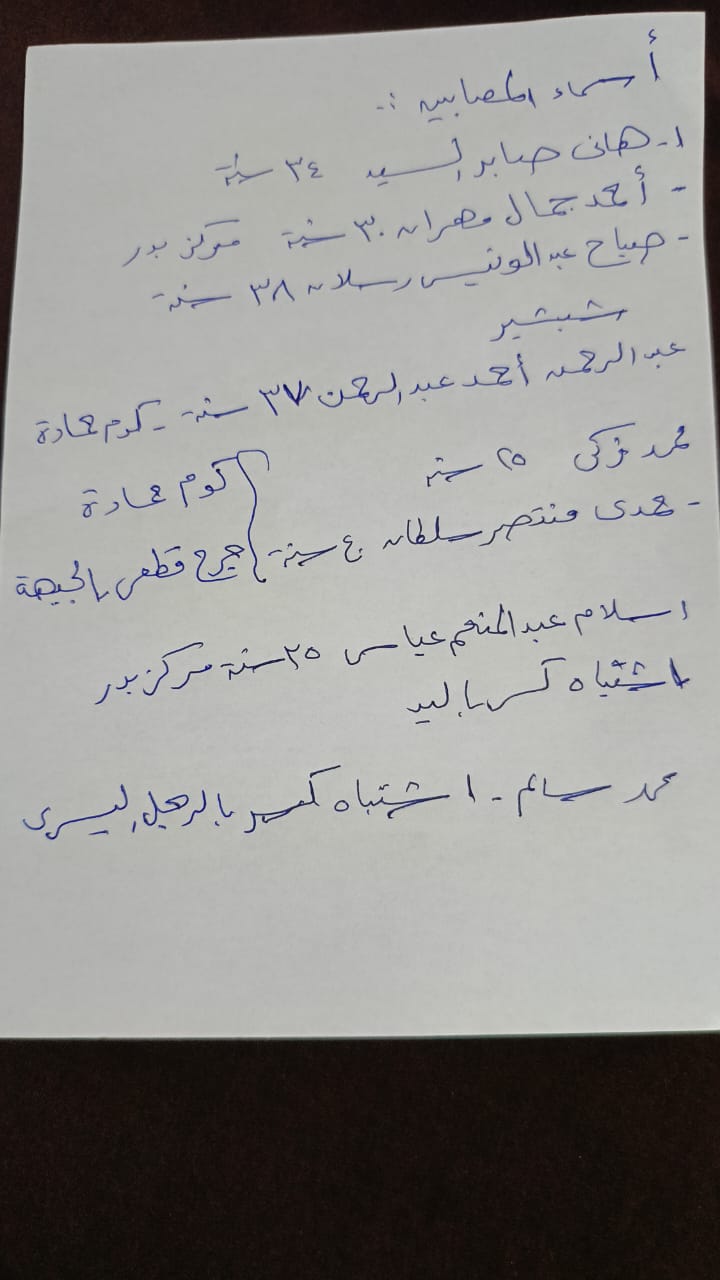 أسماء المصابين :-
١- هانى صابر السيد ٣٤ سنة
- أحمد جمال مهران ٣٠ سنة مركز بدر
- صباح عبد الونيس رسلان ٣٨ سنة
شبشير
عبد الرحمن أحمد عبد الرحمن ٣٧ سنة - كوم حمادة
محمد تركى ٢٥ سنة
كوم حمادة
- حمدى منتصر سلطان ٤٠ سنة
جرح قطعى بالجبهة
اسلام عبد المنعم عباس ٢٥ سنة مركز بدر
اشتباه كسر باليد
محمد سالم - اشتباه كسر بالرجل اليسرى